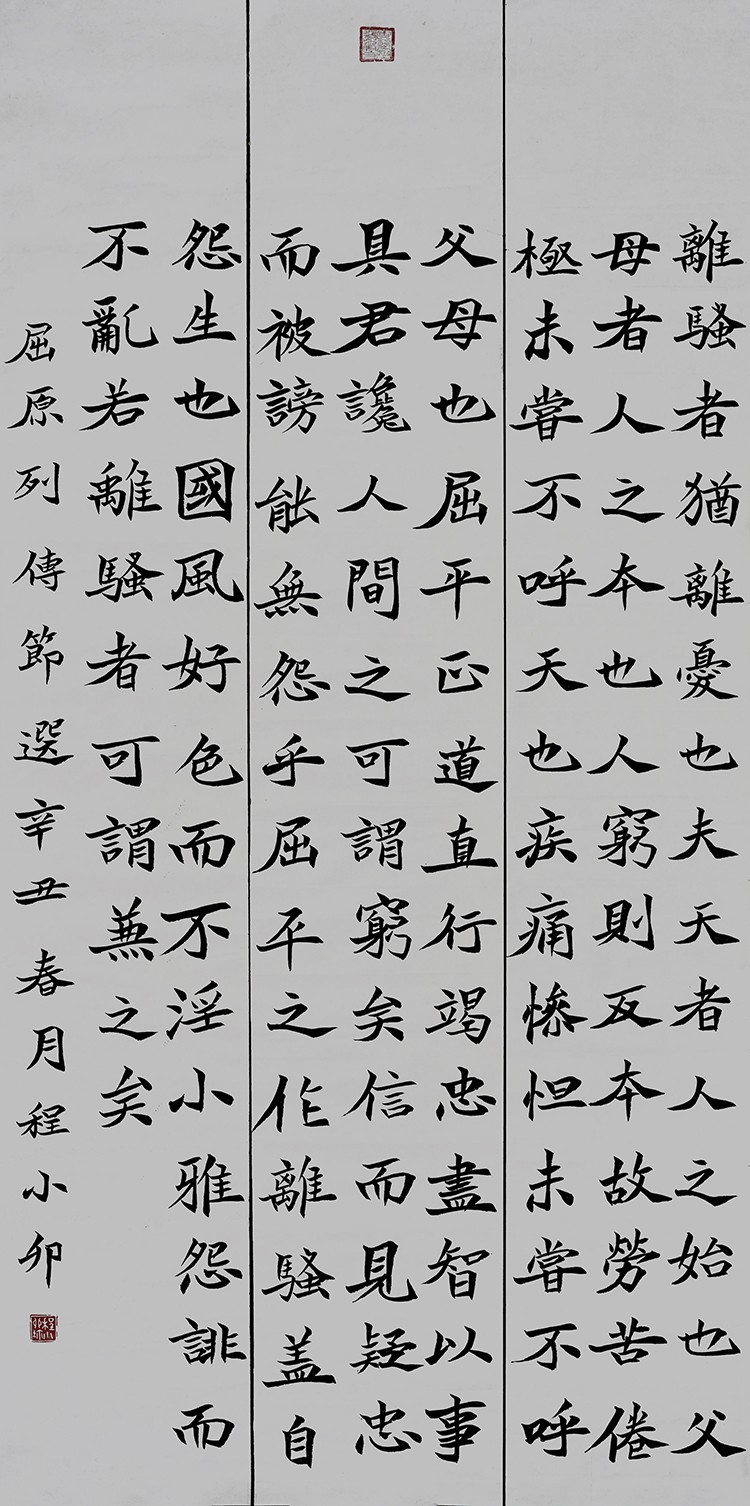 離騷者猶離憂也夫天者人之始也父
母者人之本也人窮則反本故勞苦倦
極未嘗不呼天也疾痛慘怛未嘗不呼
父母也屈平正道直行竭忠盡智以事
具君讒人間之可謂窮矣信而見疑忠
而被謗能無怨乎屈平之作離騷盖自
怨生也國風好色而不淫小雅怨誹而
不亂若離騷者可謂兼之矣
屈原列傳節選辛丑春月程小卯